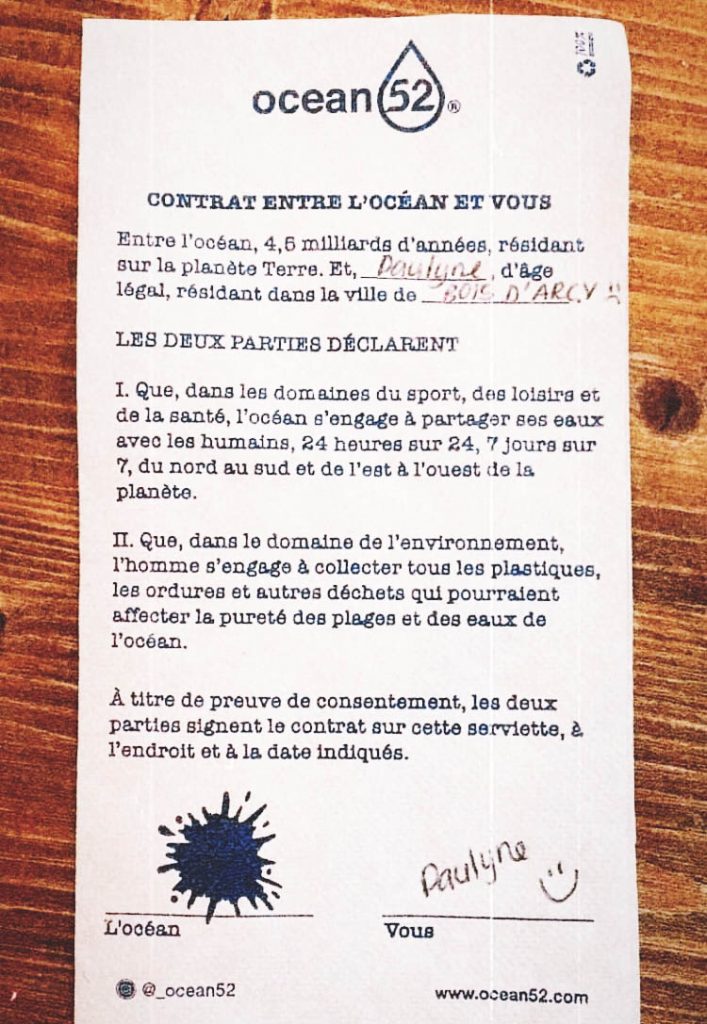 ocean 52®
CONTRAT ENTRE L'OCÉAN ET VOUS
Entre l'océan, 4,5 milliards d'années, résidant
sur la planète Terre. Et, Paulyne, d'âge
légal, résidant dans la ville de BOIS D'ARCY
LES DEUX PARTIES DÉCLARENT
I. Que, dans les domaines du sport, des loisirs et
de la santé, l'océan s'engage à partager ses eaux
avec les humains, 24 heures sur 24, 7 jours sur
7, du nord au sud et de l'est à l'ouest de la
planète.
II. Que, dans le domaine de l'environnement,
l'homme s'engage à collecter tous les plastiques,
les ordures et autres déchets qui pourraient
affecter la pureté des plages et des eaux de
l'océan.
À titre de preuve de consentement, les deux
parties signent le contrat sur cette serviette, à
l'endroit et à la date indiqués.
Paulyne
L'océan Vous
@_ocean52 www.ocean52.com